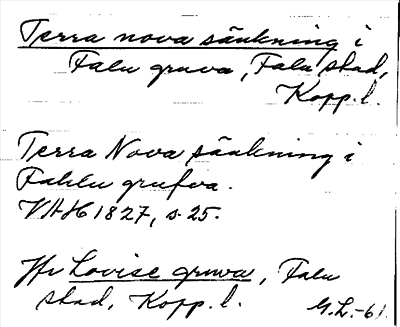 Terra nova sänkning i
Falu gruva, Falu stad,
Kopp.l.
Terra Nova sänkning i
Fahlu grufva.
VAH 1827, s. 25.
Jfr Lovise gruva, Falu
stad, Kopp. l.
G.L.-61.